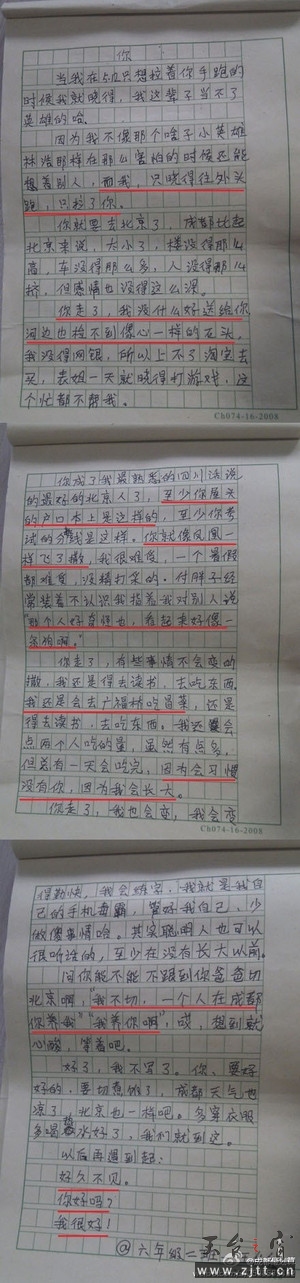 你
当我在510只想拉着你手跑的
时候我就晓得，我这辈子当不了
英雄的哈。
因为我不像那个啥子小英雄
林浩那样在那么害怕的时候还能
想着别人，而我，只晓得往外头
跑，只拉了你。
你就要去北京了，成都比起
北京来说，太小了，楼没得那么
高，车没得那么多，人没得那么
挤，但感情也没得这么深。
你走了，我没什么好送给你
河边也捡不到像心一样的石头
我没得网银，所以上不了淘宝去
买，表姐一天就晓得打游戏，这
个忙都不帮我。
Cb074-16-2008
你成了我最熟悉的四川话说
的最好的北京人了，至少你屋头
的户口本上是这样的，至少你考
试的分数是这样。你就像凤凰一
样飞了撒，我很难受，一个暑假
都难受，没精打采的。付胖子经
常装着不认识我指着我对别人说
“那个人好奇怪也，看起来好像一
条狗啊。”
你走了，有些事情不会变的
撒，我还是得去读书，去吃东西。
我还是会去广福桥吃冒菜，还是
得去读书，去吃东西。我还会
点两个人吃的量，虽然有点多，
但总有一天会吃完，因为会习惯
没有你，因为我会长大。
你走了，我也会变，我会变
Cb074-16-2008
得勤快，我会练字，我就是我自
己的手机毒霸，管好我自己，少
做傻事情哈。其实聪明人也可以
很听话的，至少在没有长大以前。
问你能不能不跟到你爸爸切
北京啊，“我不切，一个人在成都
你养我”“我养你啊”，哎，想到就
心酸，等着吧。
好了，我不写了。你，要好
好的，要切煮馍了，成都天气也
凉了，北京也一样吧。多穿衣服
多喝水好了，我们就到这。
以后再遇到起：
好久不见。
你好吗？
我很好！
@六年级二班
www.zjtt.cn